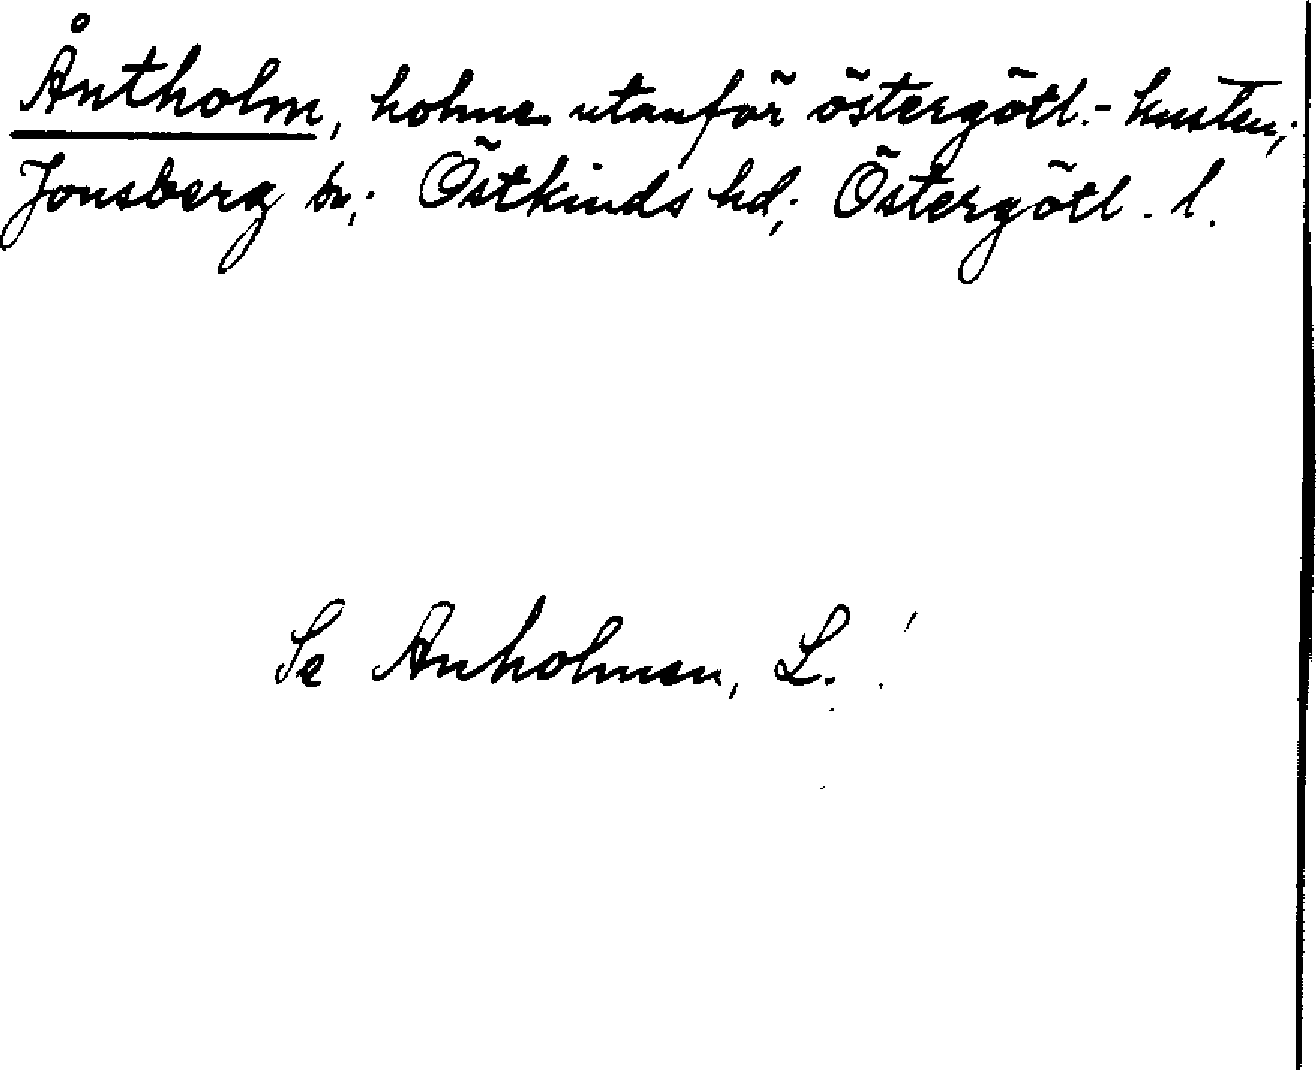 Åntholm, holme utanför östergötl.-kusten;
Jonsberg sn; Östkinds hd; Östergötl. l.
Se Anholmen, L.!